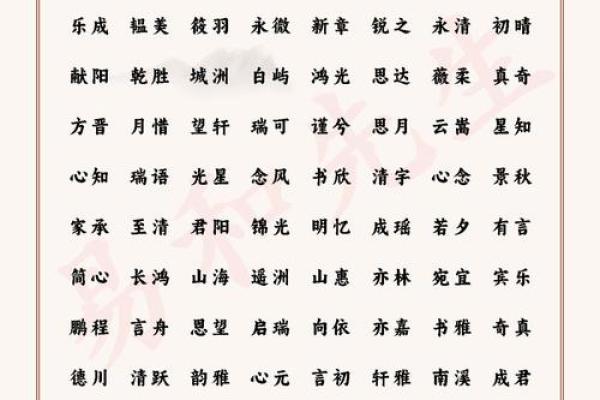 乐成 韫美 筱羽 永微 新章 锐之 永清 初晴
献阳 乾胜 城洲 白屿 鸿光 思达 薇柔 真奇
方晋 月惜 望轩 瑞可 谨兮 思月 云嵩 星知
心知 瑞语 光星 念风 书欣 清宇 心念 景秋
家承 至清 君阳 锦光 明忆 成瑶 若夕 有言
简心 长鸿 山海 遥洲 山惠 亦林 宛宜 宾乐
鹏程 言舟 恩望 启瑞 向依 亦嘉 书雅 奇真
德川 清跃 韵雅 心元 言初 轩雅 南溪 成君
易和先生